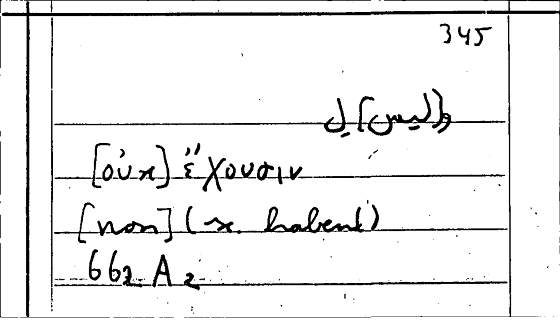 345
و[ليس] ل
[οὐκ] ἔχουσιν
[non] (sc. habent)
662 A 2